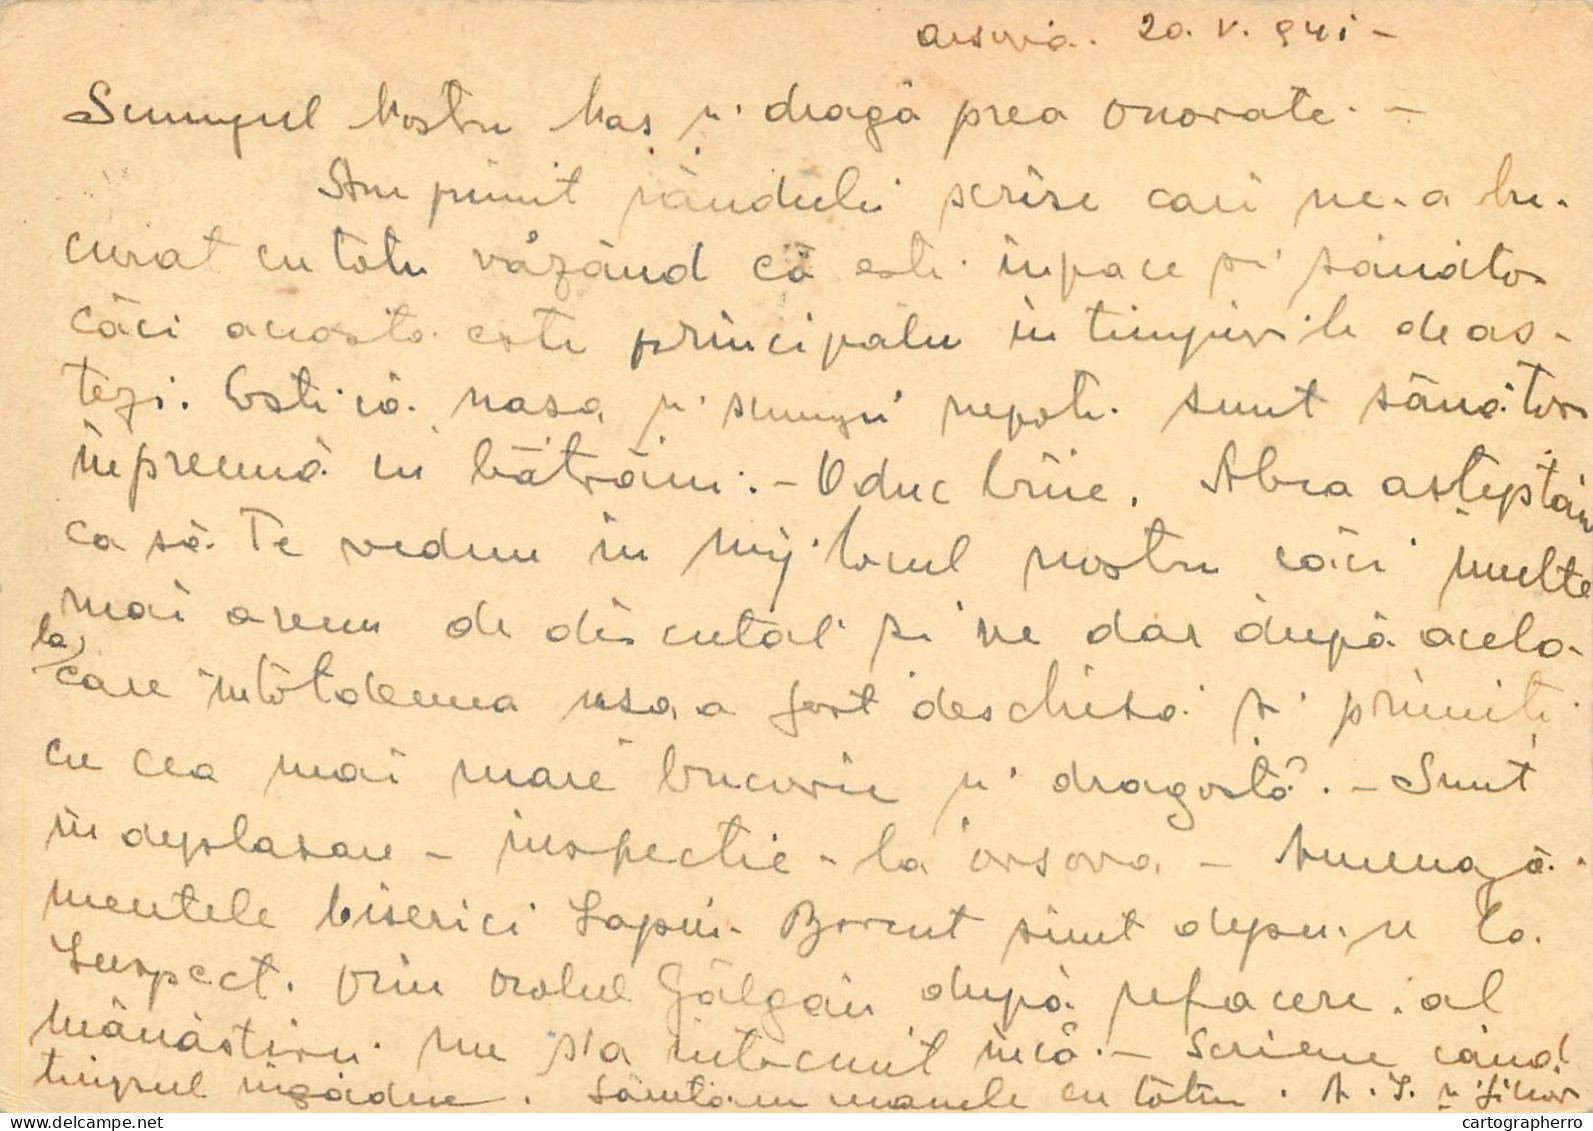 Orsova. 20. V. 941 -
Scumpul Nostru Naș și dragă prea onorate. -
Am primit rândule scrise cari ne-a bu-
curat cu totu văzând că este în pace și sănăto-
căci aciasta este principalu în timpurile de as-
tezi. Este că nasa și scumpi nepoti sunt sănătoș
înpreună cu bătrâni. - O duc bine. Abia asteptăm
ca să Te vedem în mijlocul nostru căci multe
mai avem de discutat și ne dar după acela-
la care întotdeauna usa a fost deschisă și primiti
cu cea mai mare bucurie și dragostă. - Sunt
în deplasare - inspectie - la Orsova - Amenajă-
mentele biserici Sunt depuse la
Inspect. prin Ocolul după refacere. al
Mănăstiri nu s'a intocmit încă. - Scriene când
timpul îngădue. Sărutăm manele cu totii.
cartographerro